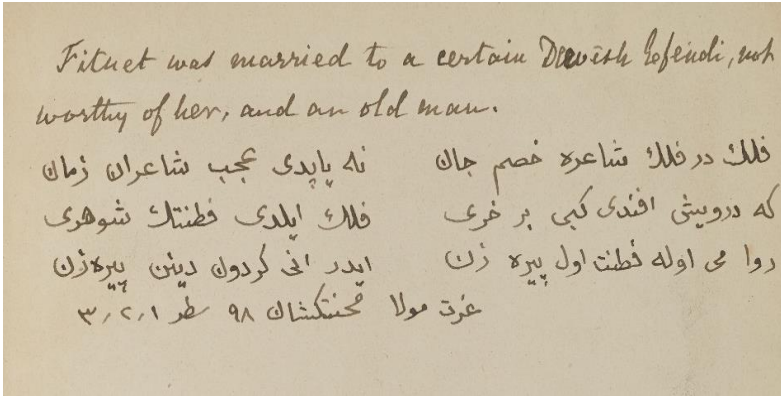 Fitnet was married to a certain Dervish Efendi, not
worthy of her, and an old man.
فلك در فلك شاعره خصم جان نه ياپدى عجب شاعران زمان
كه درويش افندى كبى بر خرى فلك ايلدى فطنتك شوهرى
روا مى اوله فطنت اول پيره زن ايدر انى كردون دينن پيره زن
عزت مولا محنتكشان ٩٨ سطر ٣٫٢٫١